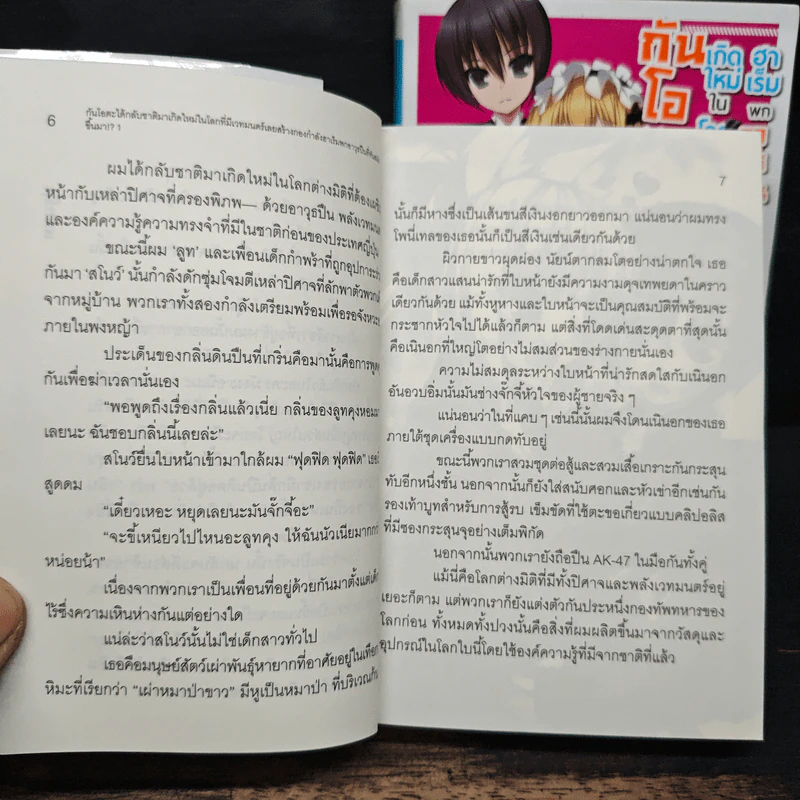 6
กันโอตะได้กลับชาติมาเกิดใหม่ในโลกที่มีเวทมนตร์เลยสร้างกองกำลังฮาเร็มพกอาวุธปืน
ขึ้นมา!? 1
ผมได้กลับชาติมาเกิดใหม่ในโลกต่างมิติที่ต้อง
หน้ากับเหล่าปีศาจที่ครองพิภพ— ด้วยอาวุธปืน พลังเวทมนตร์
และองค์ความรู้ความทรงจำที่มีในชาติก่อนของประเทศญี่ปุ่น
ขณะนี้ผม ‘ลูท’ และเพื่อนเด็กกำพร้าที่ถูกอุปการะ
กันมา ‘สโนว์’ นั้นกำลังดักซุ่มโจมตีเหล่าปีศาจที่ลักพาตัวพวก
จากหมู่บ้าน พวกเราทั้งสองกำลังเตรียมพร้อมเพื่อรอจังหวะ
ภายในพงหญ้า
ประเด็นของกลิ่นดินปืนที่เกริ่นคือมานั้นคือการพูดคุย
กันเพื่อฆ่าเวลานั่นเอง
“พอพูดถึงเรื่องกลิ่นแล้วเนี่ย กลิ่นของลูทคุงหอม
เลยนะ ฉันชอบกลิ่นนี้เลยล่ะ”
สโนว์ยื่นใบหน้าเข้ามาใกล้ผม “ฟุดฟิด ฟุดฟิด” เธอ
สูดดม
“เดี๋ยวเหอะ หยุดเลยนะมันจั๊กจี้อะ”
“จะขี้เหนียวไปไหนอะลูทคุง ให้ฉันนัวเนียมากกว่า
หน่อยน้า”
เนื่องจากพวกเราเป็นเพื่อนที่อยู่ด้วยกันมาตั้งแต่เด็ก
ไร้ซึ่งความเหินห่างกันแต่อย่างใด
แน่ล่ะว่าสโนว์นั้นไม่ใช่เด็กสาวทั่วไป
เธอคือมนุษย์สัตว์เผ่าพันธุ์หายากที่อาศัยอยู่ในเทือก
หิมะที่เรียกว่า “เผ่าหมาป่าขาว” มีหูเป็นหมาป่า ที่บริเวณก้น
7
นั้นก็มีหางซึ่งเป็นเส้นขนสีเงินงอกยาวออกมา แน่นอนว่าผมทรง
โพนี่เทลของเธอนั้นก็เป็นสีเงินเช่นเดียวกันด้วย
ผิวกายขาวผุดผ่อง นัยน์ตากลมโตอย่างน่าตกใจ เธอ
คือเด็กสาวแสนน่ารักที่ใบหน้ายังมีความงามดุจเทพยดาในคราว
เดียวกันด้วย แม้ทั้งหูหางและใบหน้าจะเป็นคุณสมบัติที่พร้อมจะ
กระชากหัวใจไปได้แล้วก็ตาม แต่สิ่งที่โดดเด่นสะดุดตาที่สุดนั้น
คือเนินอกที่ใหญ่โตอย่างไม่สมส่วนของร่างกายนั่นเอง
ความไม่สมดุลระหว่างใบหน้าที่น่ารักสดใสกับเนินอก
อันอวบอิ่มนั้นมันช่างจั๊กจี้หัวใจของผู้ชายจริง ๆ
แน่นอนว่าในที่แคบ ๆ เช่นนี้นั้นผมจึงโดนเนินอกของเธอ
ภายใต้ชุดเครื่องแบบกดทับอยู่
ขณะนี้พวกเราสวมชุดต่อสู้และสวมเสื้อเกราะกันกระสุน
ทับอีกหนึ่งชั้น นอกจากนั้นก็ยังใส่สนับศอกและหัวเข่าอีกเช่นกัน
รองเท้าบูทสำหรับการสู้รบ เข็มขัดที่ใช้ตะขอเกี่ยวแบบคลิปอลิส
ที่มีซองกระสุนจุอย่างเต็มพิกัด
นอกจากนั้นพวกเรายังถือปืน AK-47 ในมือกันทั้งคู่
แม้นี่คือโลกต่างมิติที่มีทั้งปีศาจและพลังเวทมนตร์อยู่
เยอะก็ตาม แต่พวกเราก็ยังแต่งตัวกันประหนึ่งกองทัพทหารของ
โลกก่อน ทั้งหมดทั้งปวงนั้นคือสิ่งที่ผมผลิตขึ้นมาจากวัสดุและ
อุปกรณ์ในโลกใบนี้โดยใช้องค์ความรู้ที่มีจากชาติที่แล้ว
กัน
โอ
เกิด
ใหม่
ใน
ฮา
เร็ม
พก